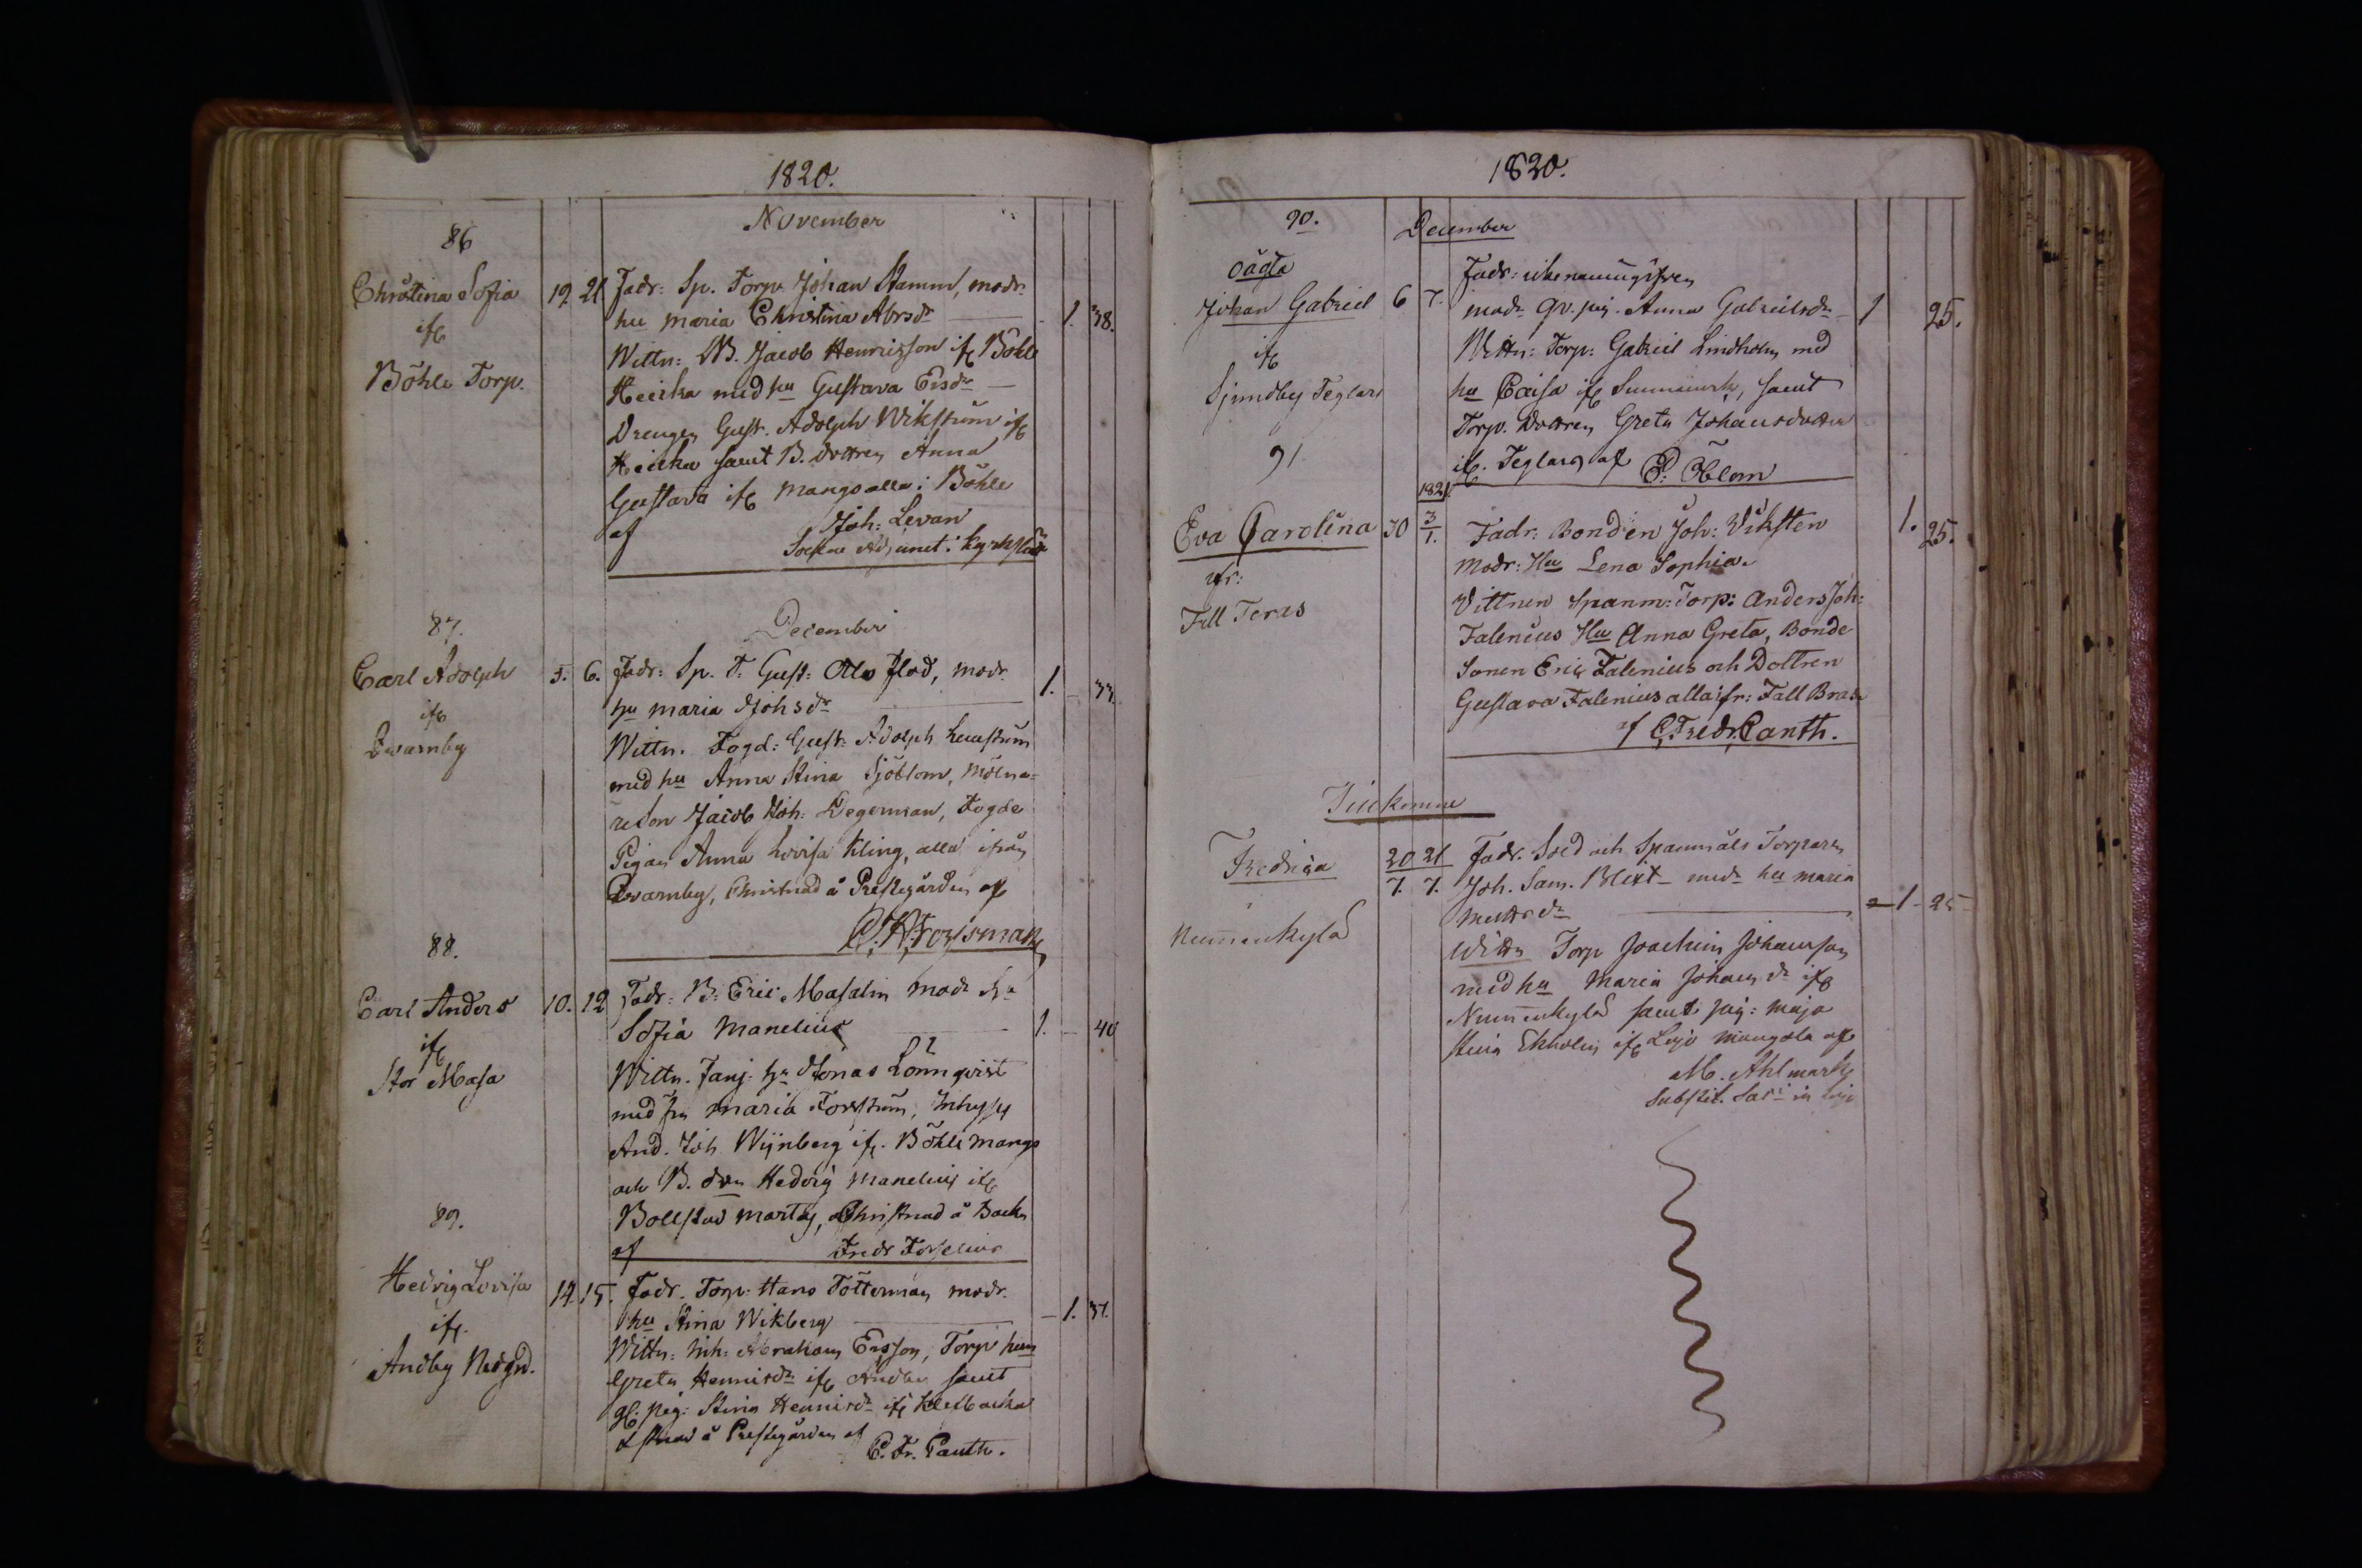 1820.
November
86
Christina Sofia 19 21 Fadr: Sp. Torp. Johan Stamm, modr.
hu Maria Christina Abrsdr 1. 38.
ifr
Wittn: B. Jacob Henricsson ifr Böhle
Böhle Torp.
Heicka med hu Gustava Ersdr
Drengen Gust. Adolph Wikström ifr
Heicka samt B. dottren Anna
Gustava ifr Mangs alla i Böhle
af Joh: Levan
Sockne Adjunct i Kyrkslätt
December
87.
Carl Adolph 5. 6. Fadr: Sp. T. Gust: Otto Flod, modr.
hu Maria Johsdr 1. 33.
ifr
Qvarnby
Wittn. Fogd: Gust: Adolph
med hu Anna Stina Sjöblom, Mölna-
redon Jacob Joh: Degerman, Fogde
Pigan Anna Lovisa Kling, alla ifrån
Qvarnby, Christnad å Prestegården af
88.
Carl Anders 10. 12 Fadr: B: Eric Masalin modr hu
Sofia Manelius 1. 40
ifr
Stor Masa
Wittn. Fanj. hr Jonas Lönnqvist
med fru Maria Forsström, Inhyss
And. Joh Wijnberg ifr. Böhle Mangs
och B. drn Hedvig Manelius ifr
Bollstad Martas, Christnad å Backa
af Fredr Forselius
89.
Hedvig Lovisa 14 15. Fadr. Torp. Hans Tötterman modr.
hu Stina Wikberg 1. 31.
ifr.
Andby Nedgd.
Wittn: Inh: Abraham Ersson, Torp hun
Greta Henricdr ifr Andby samt
pig: Stina Henricdr ifr
å Prestegården af
C. Fr. Canth.
1820.
90. December
oägta
Fadr:
Johan Gabriel 6 7. modr Qv. pig. Anna Gabrielsdr 1 25.
ifr
Wittn: Torp: Gabriel Lindholm med
Sjundby Teglars
hu Caisa ifr, samt
Torp. Dottren Greta Johansdotter
91
ifr. Teglars af P: Öblom
1821.
Eva Carolina 30 3/1. Fadr: Bonden Joh: Viksten 1. 25.
Modr: Hu Lena Sophia.
ifr:
Fall Teras
Vittnen Spanm: Torp: Anders Joh:
Falenius Hu Anna Greta, Bonde
Sonen Eric Falenius och Dottren
Gustava Falenius alla ifr: Fall Brase
af C. Fredr. Canth.
Inkomne
Fredrica 20 21 Fadr. Sold och Spanmåls Torparen
7. 7. Joh. Sam. Blixt modr hu Maria
Mattsdr 1 25
Nummenkylä
Wittn Torp Joachim Johansson
med hu Maria Johansdr ifr
Nummenkylä samt pig: Maja
Stina Ekholm ifr Lojo af
M. Ahlmark
Substit. Sac: in Lojo